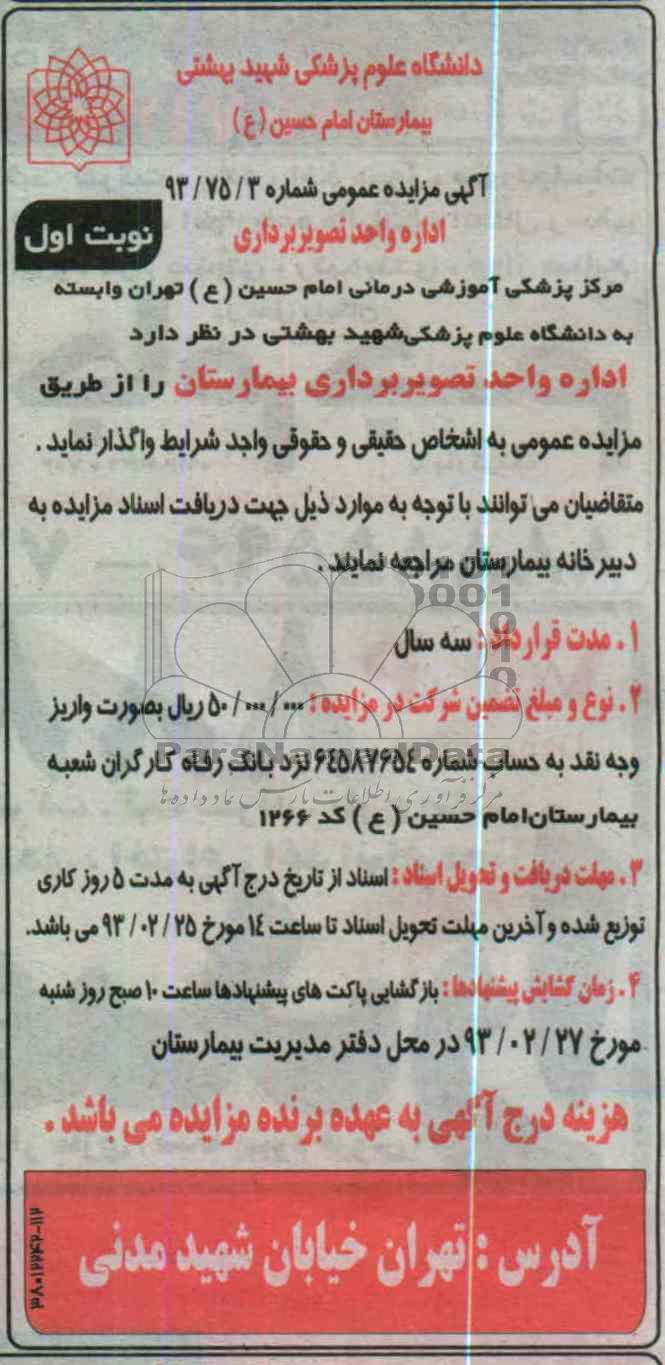 دانشگاه علوم پزشکی شهید بهشتی
بیمارستان امام حسین (ع)
آگهی مزایده عمومی شماره ۳ / ۷۵ / ۹۳
اداره واحد تصویربرداری
نوبت اول
مرکز پزشکی آموزشی درمانی امام حسین ( ع ) تهران وابسته
به دانشگاه علوم پزشکی شهید بهشتی در نظر دارد
اداره واحد تصویربرداری بیمارستان را از طریق
مزایده عمومی به اشخاص حقیقی و حقوقی واجد شرایط واگذار نماید .
متقاضیان می توانند با توجه به موارد ذیل جهت دریافت اسناد مزایده به
دبیرخانه بیمارستان مراجعه نمایند .
۱ . مدت قرارداد : سه سال
۲ . نوع و مبلغ تضمین شرکت در مزایده : ۵۰/۰۰۰/۰۰۰ ریال بصورت واریز
وجه نقد به حساب شماره ۶۴۵۸۷۶۵۴ نزد بانک رفاه کارگران شعبه
بیمارستان امام حسین ( ع ) کد ۱۲۶۶
۳ . مهلت دریافت و تحویل اسناد : اسناد از تاریخ درج آگهی به مدت ۵ روز کاری
توزیع شده و آخرین مهلت تحویل اسناد تا ساعت ۱۴ مورخ ۲۵ / ۰۲ / ۹۳ می باشد.
۴ . زمان گشایش پیشنهادها : بازگشایی پاکت های پیشنهادها ساعت ۱۰ صبح روز شنبه
مورخ ۲۷ / ۰۲ / ۹۳ در محل دفتر مدیریت بیمارستان
هزینه درج آگهی به عهده برنده مزایده می باشد .
آدرس : تهران خیابان شهید مدنی
ParsNamadData
مرکز فرآوری اطلاعات پارس نماد داده ها